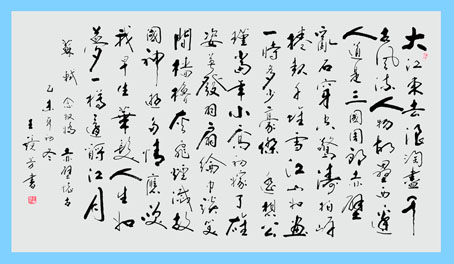 大江東去浪淘盡千
古風流人物故壘西邊
人道是三國周郎赤壁
亂石穿空驚濤拍岸
捲起千堆雪江山如畫
一時多少豪傑遙想公
瑾當年小喬初嫁了雄
姿英發羽扇綸巾談笑
間檣櫓灰飛煙滅故
國神遊多情應笑
我早生華髮人生如
夢一樽還酹江月
蘇軾念奴嬌赤壁懷古
乙未年初冬
王書